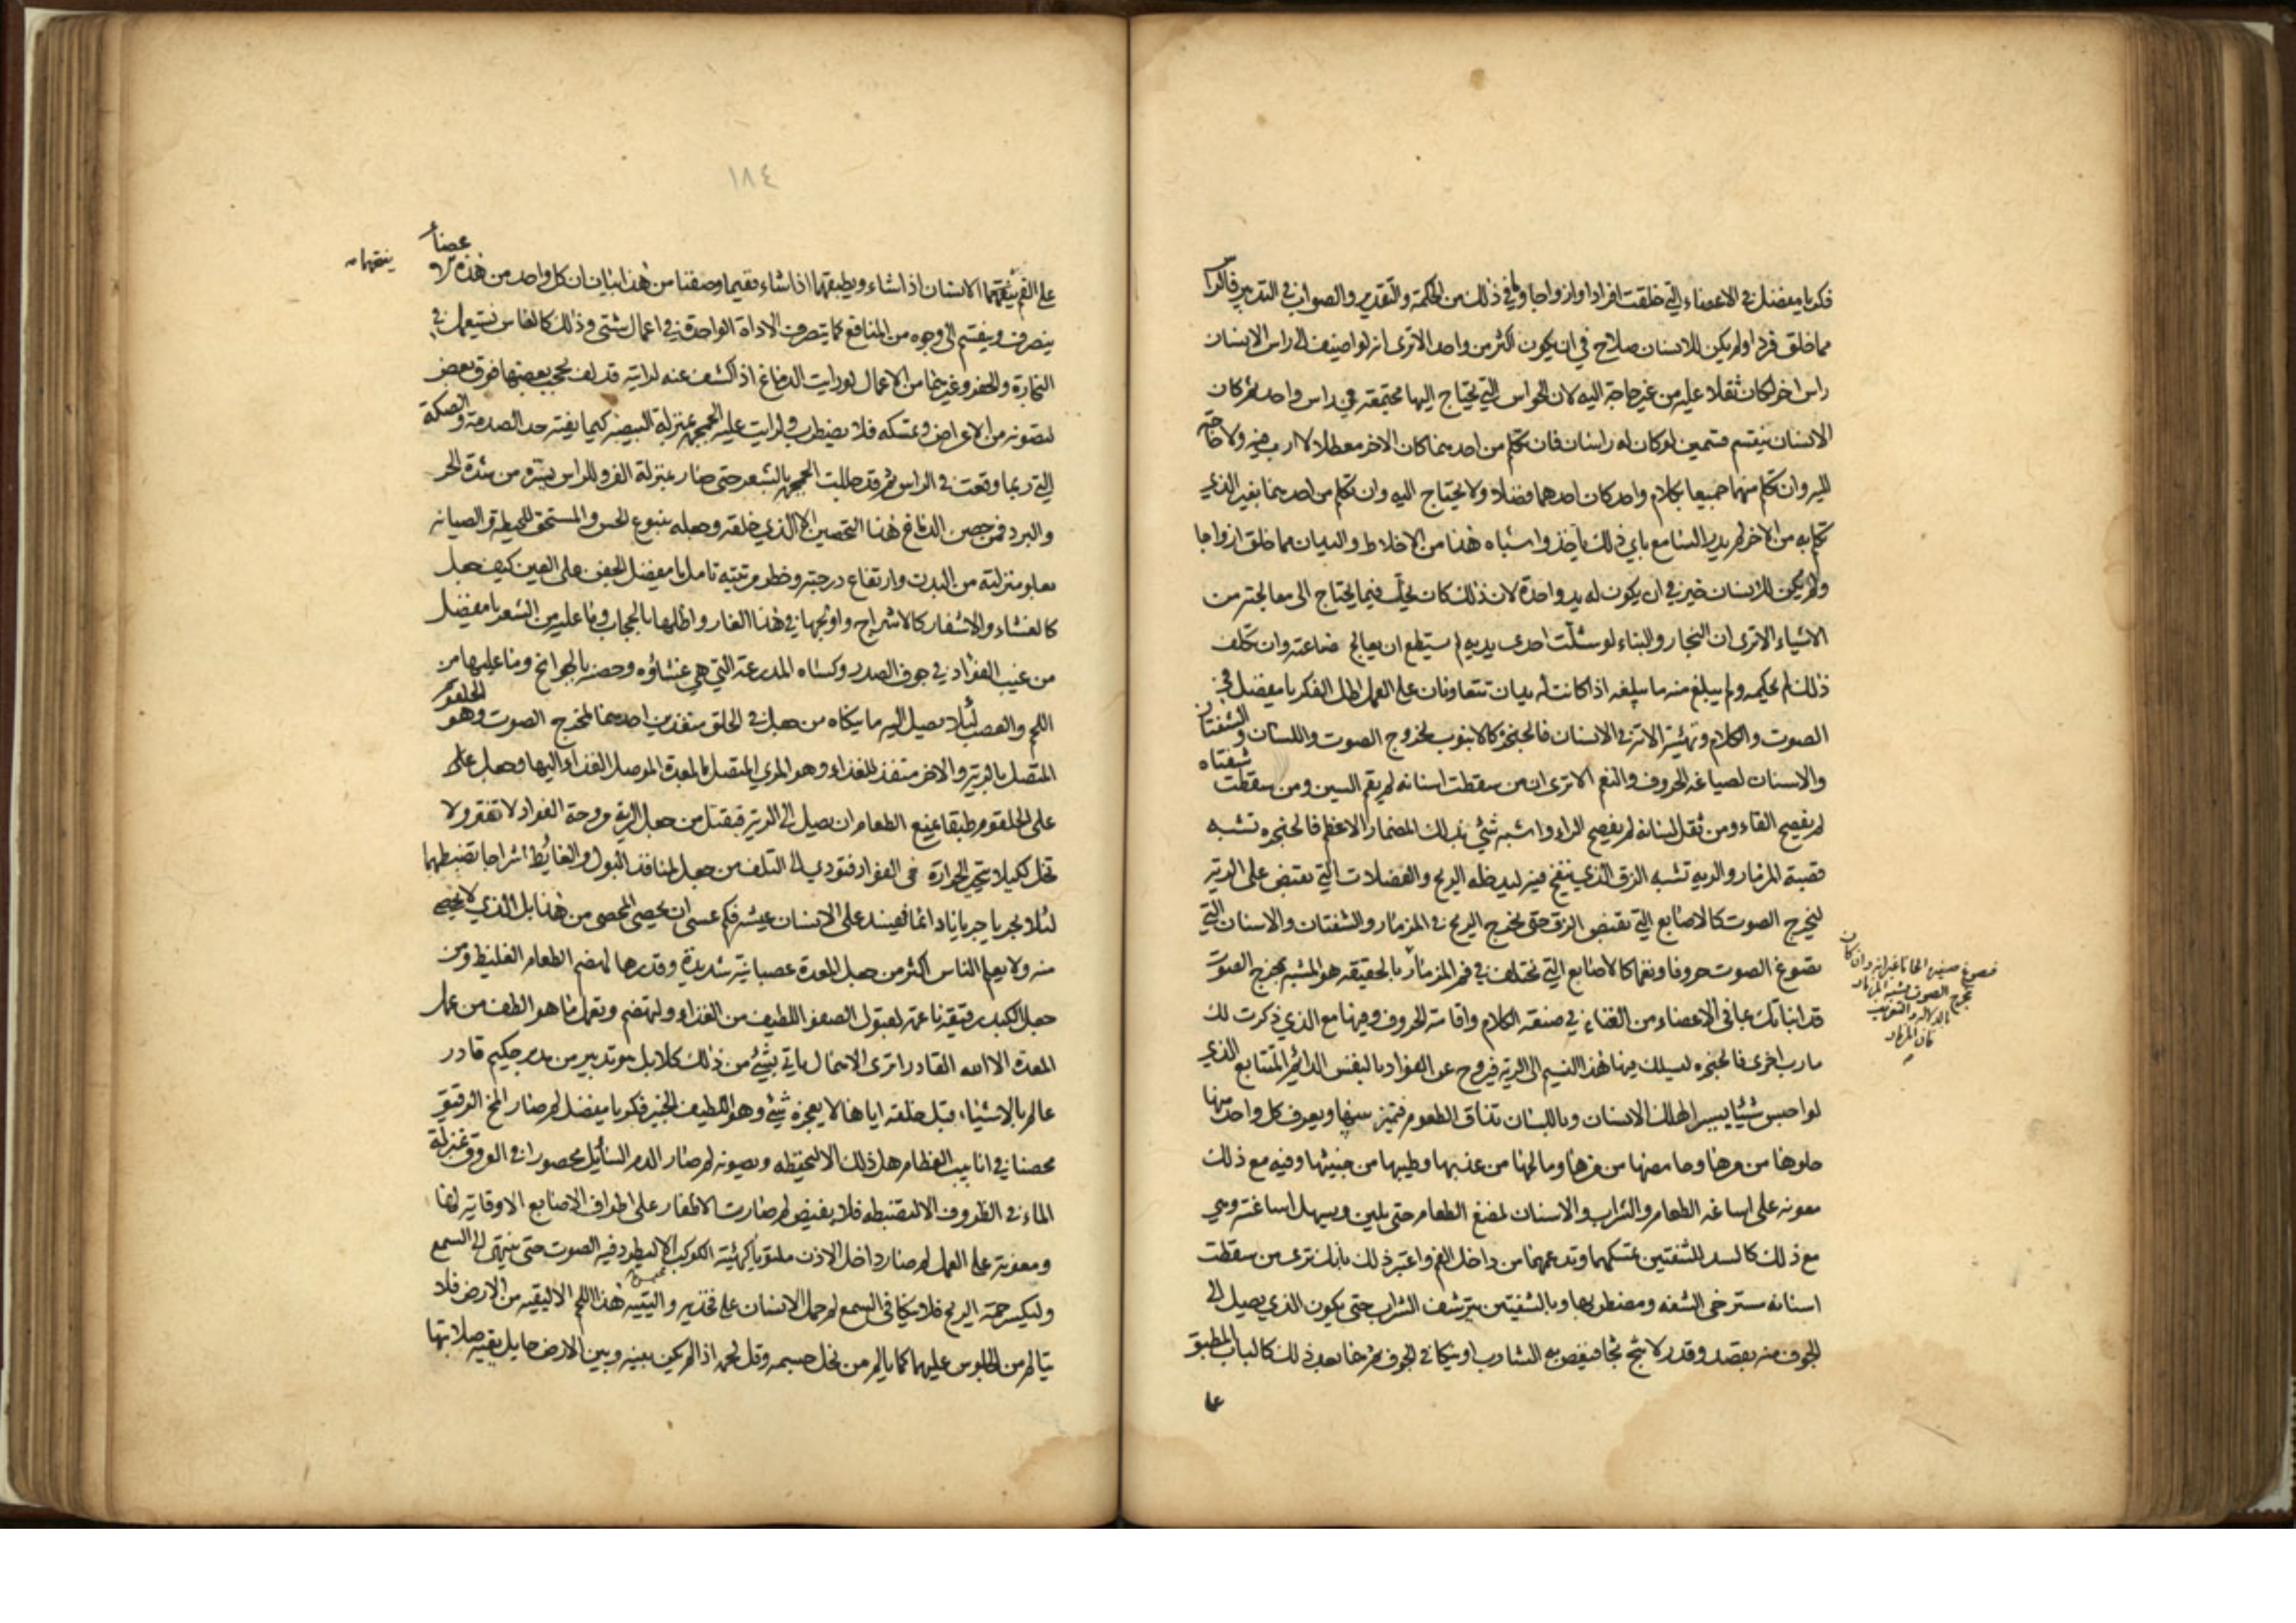 فكر يا مفضل في الاعضاء التي خلقت افرادا وازواجا وما في ذلك من الحكمة والتقدير والصواب في التدبير فالراس
مما خلق فردا ولم يكن للانسان صلاح في ان يكون اكثر من واحد الا ترى انه لو اضيف الى راس الانسان
راس اخر لكان ثقلا عليه من غير حاجة اليه لان الحواس التي يحتاج اليها مجتمعة في راس واحد ثم كان
الانسان ينقسم قسمين لو كان له راسان فان تكلم من احدهما كان الاخر معطلا لا ارب فيه ولا حاجة
اليه وان تكلم منهما جميعا بكلام واحد كان احدهما فضلا ولا يحتاج اليه وان تكلم من احدهما بغير الذي
تكلم به من الاخر لم يدر السامع باي ذلك ياخذ واشباه هذا من الاخلاط واليدان مما خلق ازواجا
ولم يكن للانسان خير في ان يكون له يد واحدة لان ذلك كان يخل فيما يحتاج الى معالجته من
الاشياء الا ترى ان النجار والبناء لو شلت احدى يديه لم يستطع ان يعالج صناعته وان تكلف
ذلك لم يحكمه ولم يبلغ منه ما يبلغه اذا كانت له يدان تتعاونان على العمل اطل الفكر يا مفضل في
الصوت والكلام وتهيئة الاته في الانسان فالحنجرة كالانبوب لخروج الصوت واللسان والشفتان
والاسنان لصياغة الحروف والنغم الا ترى ان من سقطت اسنانه لم يقم السين ومن سقطت شفتاه
لم يفصح الفاء ومن ثقل لسانه لم يفصح الراء واشبه شئ بذلك المزمار الاعظم فالحنجره تشبه
قصبة المزمار والريه تشبه الزق الذي ينفخ فيه ليدخله الريح والعضلات التي تقبض على الريه
ليخرج الصوت كالاصابع التي تقبض الزق حتى يخرج الريح في المزمار والشفتان والاسنان التي
تصوغ الصوت حروفا ونغما كالاصابع التي تختلف في فم المزمار بالحقيقه هو المشبه بمخرج الصوت
فتصوغ صفيره الحانا غير انه وان كان
مخرج الصوت يشبه المزمار
بالدلاله والتعريف
فان المزمار
قد انباتك بما في الاعضاء من الغناء في صنعه الكلام واقامة الحروف وفيها مع الذي ذكرت لك
مارب اخرى فالحنجره ليسلك فيها هذا النسيم الى الريه فيروح عن الفواد بالنفس الدائم المتتابع الذي
لو احبس شيئا يسيرا لهلك الانسان وباللسان تذاق الطعوم فيميز بينها ويعرف كل واحد منها
حلوها من مرها وحامضها من مزها ومالحها من عذبها وطيبها من خبيثها وفيه مع ذلك
معونه على اساغه الطعام والشراب والاسنان لمضغ الطعام حتى يلين ويسهل اساغته وهي
مع ذلك كالسند للشفتين تمسكهما وتدعمهما من داخل الفم واعتبر ذلك بانك ترى من سقطت
اسنانه مسترخى الشفه ومضطربها وبالشفتين يترشف الشراب حتى يكون الذي يصل الى
الجوف منه بقصد وقدر لا يثج ثجا فيغص به الشارب او ينكا في الجوف ثم هما بعد ذلك كالباب المطبق
على
١٨٤
على الفم يفتحهما الانسان اذا شاء ويطبقهما اذا شاء ففيما وصفنا من هذا بيان ان كل واحد من هذه الاعضاء
يفتحهما
ينصرف وينقسم الى وجوه من المنافع كما يتصرف الاداة الواحدة في اعمال شتى وذلك كالفاس تستعمل في
النجارة والحفر وغيرهما من الاعمال لو رايت الدماغ اذا كشف عنه لرايته قد لف بحجب بعضها فوق بعض
لتصونه من الاعراض وتمسكه فلا يضطرب ولرايت عليه الجمجمه بمنزلة البيضه كيما يفته حد الصدمة والصكة
التي ربما وقعت في الراس ثم قد جللت الجمجمه بالشعر حتى صار بمنزلة الفرو للراس يستره من شدة الحر
والبرد فمن حصن الدماغ هذا التحصين الا الذي خلقه وجعله ينبوع الحس والمستحق للحيطه والصيانه
بعلو منزلته من البدن وارتفاع درجته وخطر مرتبته تامل يا مفضل الجفن على العين كيف جعل
كالغشاء والاشفار كالاشراج واولجها في هذا الغار واظلها بالحجاب وما عليه من الشعر يا مفضل
من غيب الفؤاد في جوف الصدر وكساه المدرعة التي هي غشاؤه وحصنه بالجوانح وما عليها من
اللحم والعصب لئلا يصل اليه ما ينكاه من جعل في الحلق منفذين احدهما لمخرج الصوت وهو الحلقوم
المتصل بالريه والاخر منفذ للغذاء وهو المري المتصل بالمعدة الموصل الغذاء اليها وجعل على
على الحلقوم طبقا يمنع الطعام ان يصل الى الريه فيقتل من جعل الرية مروحة الفواد لا تفتر ولا
تخل لكيلا تتحيز الحرارة في الفواد فتودي الى التلف من جعل لمنافذ البول والغائط اشراجا تضبطهما
لئلا يجريا جريانا دائما فيفسد على الانسان عيشه فكم عسى ان يحصي المحصي من هذا بل الذي لا يحصى
منه ولا يعلم الناس اكثر من جعل المعدة عصبانية شديدة وقدرها لهضم الطعام الغليظ ومن
جعل الكبد رقيقة ناعمة لقبول الصفو اللطيف من الغذاء ولتهضم وتعمل ما هو الطف من عمل
المعدة الا الله القادر اترى الاهمال ياتي بشئ من ذلك كلا بل هو تدبير من مدبر حكيم قادر
عالم بالاشياء قبل خلقه اياها لا يعجزه شئ وهو اللطيف الخبير فكر يا مفضل لم صار المخ الرقيق
محصنا في انابيب العظام هل ذلك الا ليحفظه ويصونه لم صار الدم السائل محصورا في العروق بمنزلة
الماء في الظروف الا لتضبطه فلا يفيض لم صارت الاظفار على اطراف الاصابع الا وقاية لها
ومعونة على العمل لم صار داخل الاذن ملتويا كهيئة الكوكب الا ليطرد فيه الصوت حتى ينتهى الى السمع
وليكسر حمة الريح فلا ينكا في السمع لم حمل الانسان على فخذيه واليتيه هذا اللحم الا ليقيه من الارض فلا
يتالم من الجلوس عليهما كما يالم من نحل جسمه وقل لحمه اذا لم يكن بينه وبين الارض حايل يقيه صلابتها